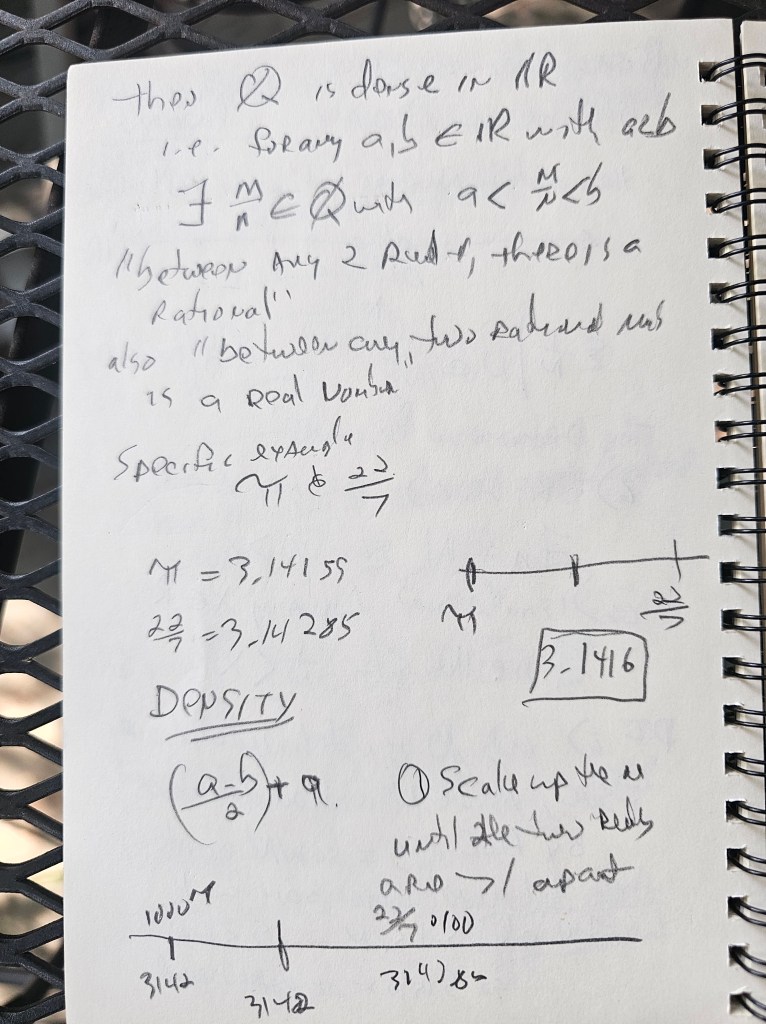 then ℚ is dense in ℝ
i.e. for any a,b ∈ ℝ with a<b
∃ M/n ∈ ℚ with a < M/N < b
"between Any 2 Real #, there is a
Rational"
also "between any two Rational
is a Real Number"
Specific example
π & 22/7
π = 3.14159
22/7 = 3.14285
π 22/7
3.1416
DENSITY
(a-b/2) + a.
① Scale up the
until the two Reals
are >1 apart
1000π 22/7
3142 3142